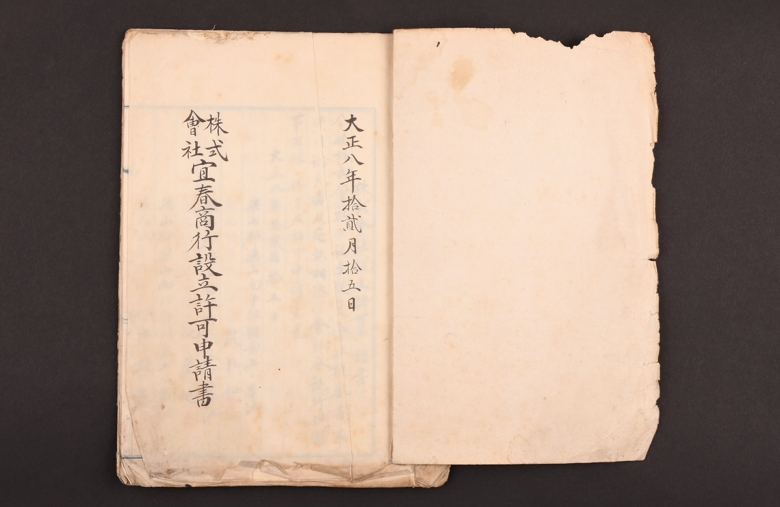 大正八年拾貳月拾五日
株式會社宜春商行設立許可申請書